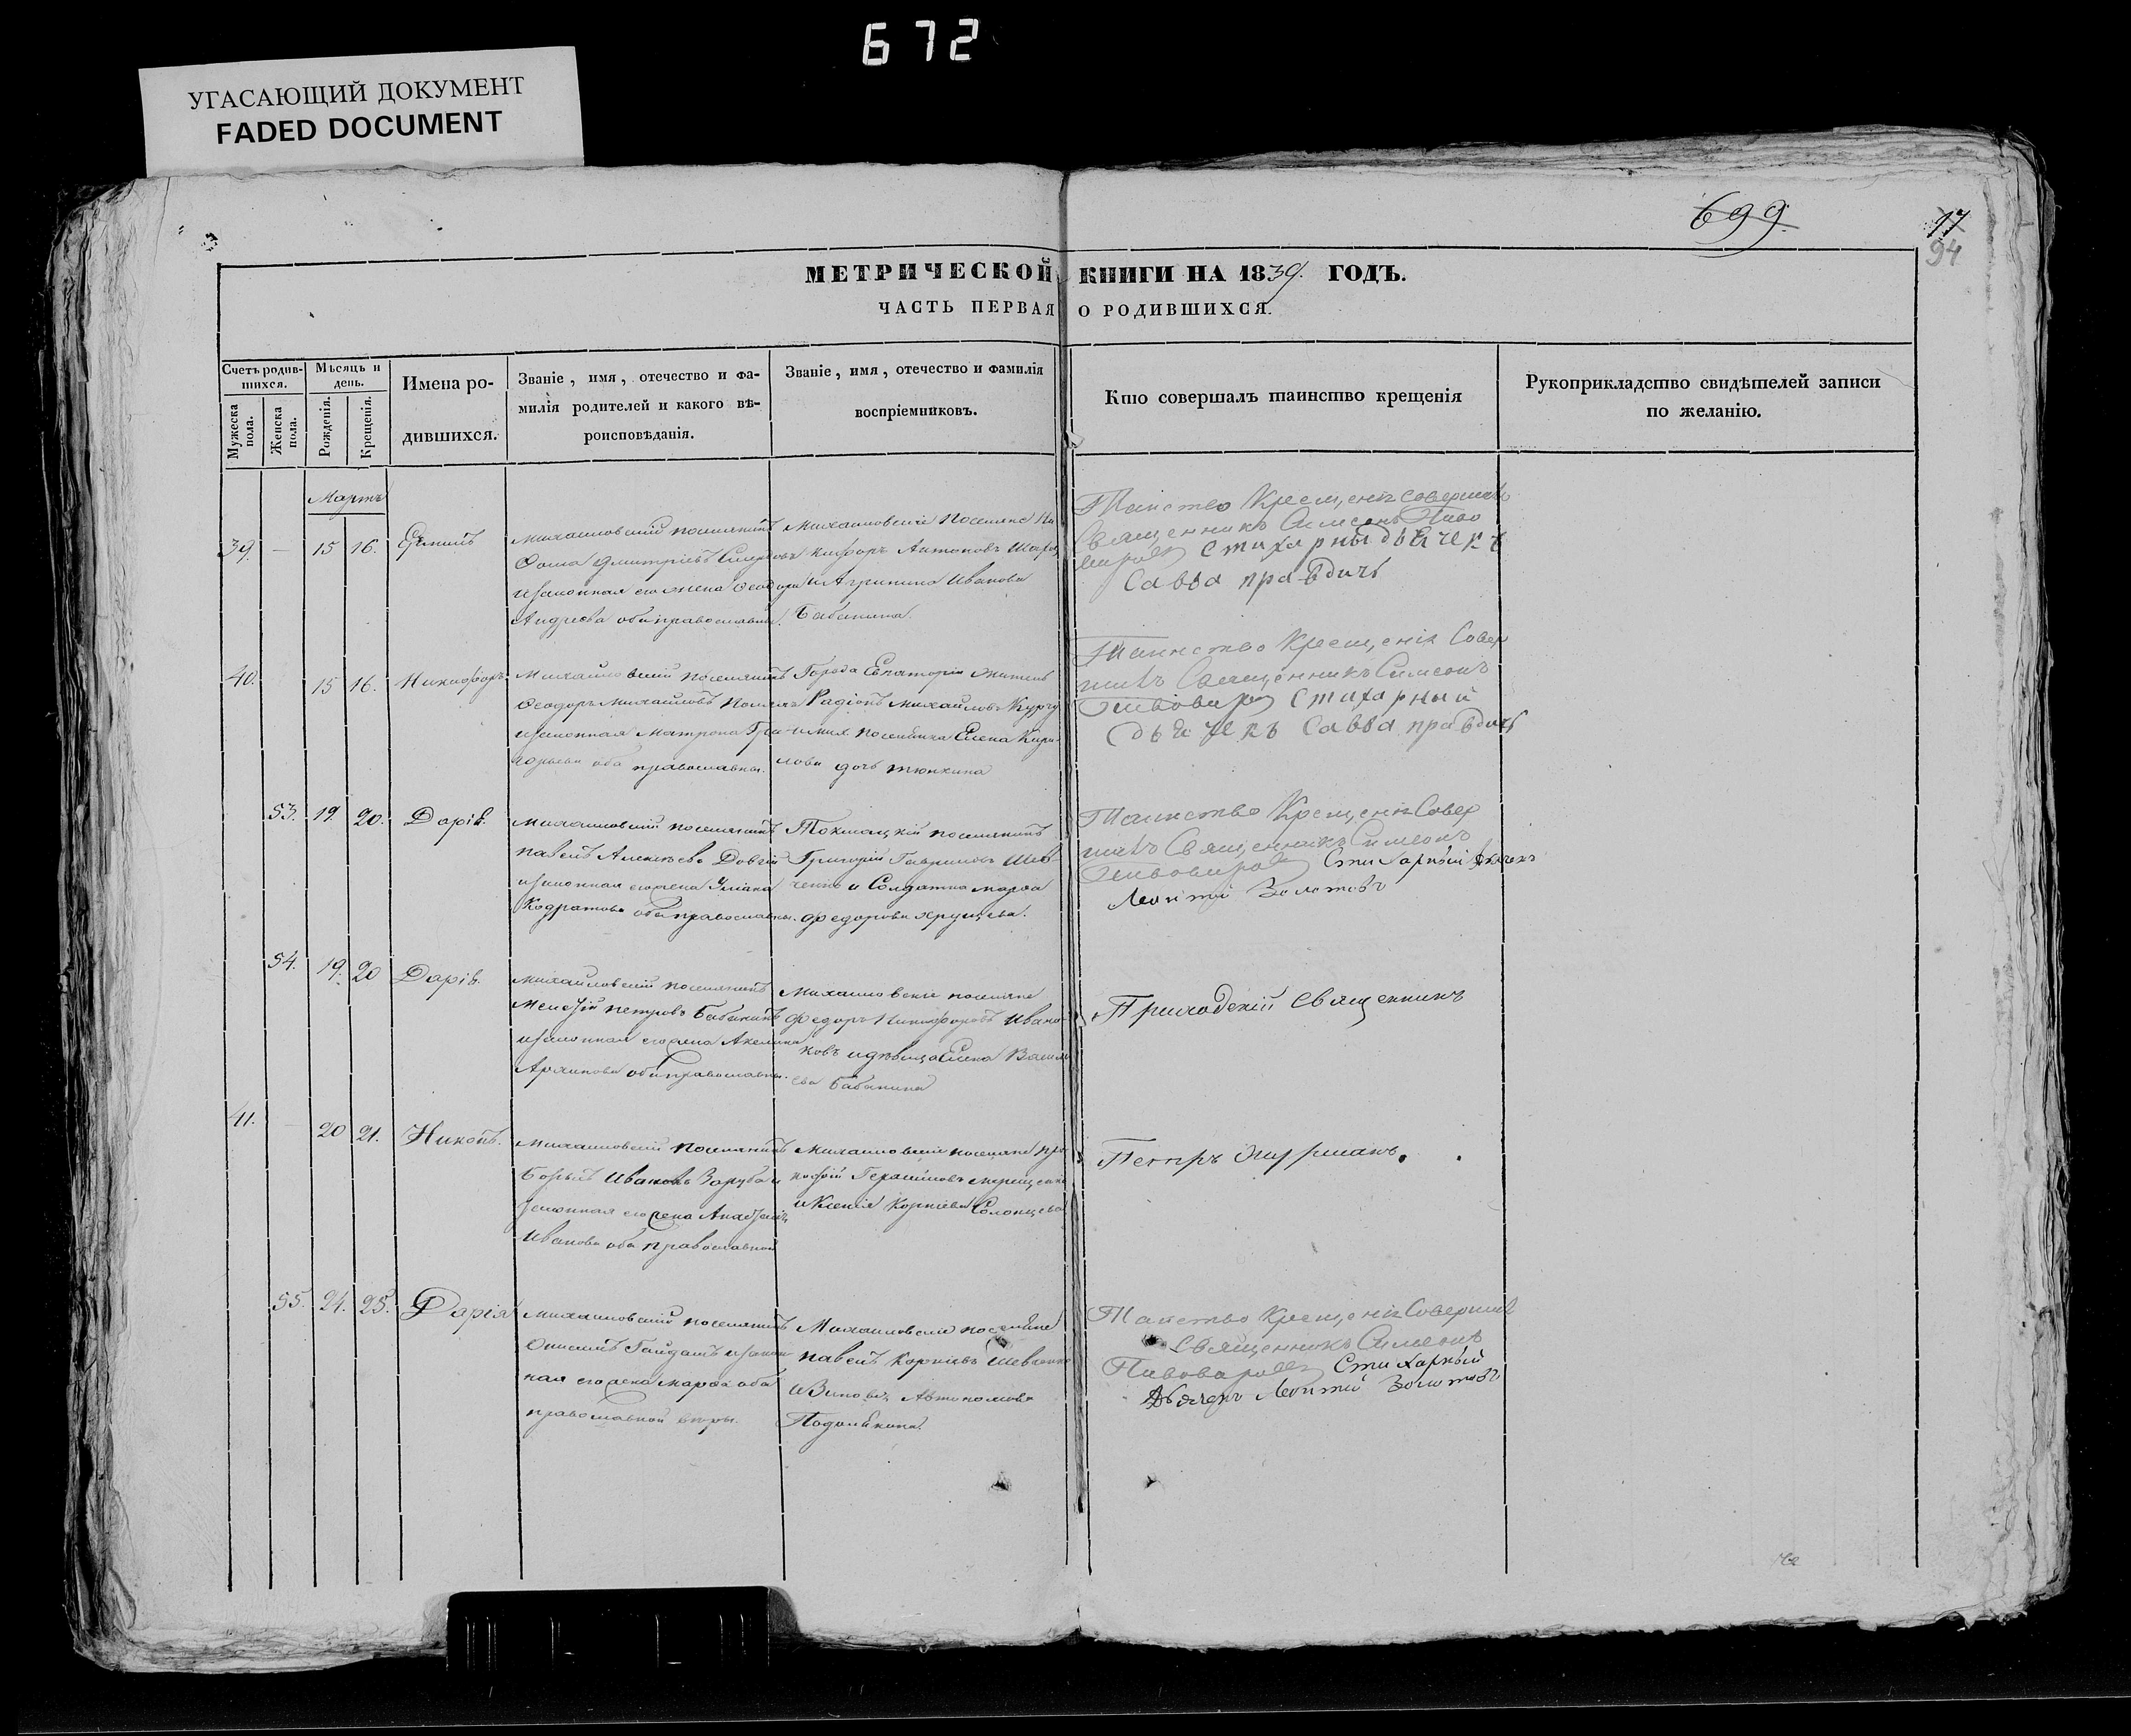 672
УГАСАЮЩИЙ ДОКУМЕНТ
FADED DOCUMENT
699.
17
94
МЕТРИЧЕСКОЙ КНИГИ НА 1839. ГОДЪ.
ЧАСТЬ ПЕРВАЯ О РОДИВШИХСЯ.
Счетъ родив-
шихся.
Мужеска пола.
Женска пола.
Мѣсяцъ и
день.
Рожденія.
Крещенія.
Имена ро-
дившихся.
Званіе, имя, отечество и фа-
милія родителей и какого вѣ-
роисповѣданія.
Званіе, имя, отечество и фамилія
воспріемниковъ.
Кто совершалъ таинство крещенія
Рукоприкладство свидѣтелей записи
по желанію.
Мартъ
39. — 15 16.
Михайловскій поселянинъ
Фома Дмитріевъ
изаконная его жена Феодора
Андреева оба православны.
Михайловскіе поселяне Ни
кифоръ Антоновъ
и Агрипина Иванова
Бабанина.
Таинство Крещенія совершалъ
Священникъ Симеонъ Пиво
варовъ Стихарный дьячекъ
Савва правдичь
40. 15 16. Никифоръ
Михайловскій поселянинъ
Феодоръ Михайловъ
изаконная Матрона Гри-
горьева оба православны.
Города Евпаторіи житель
Радіонъ Михайловъ
Елена Кири-
лова дочь тюнкина
Таинство Крещенія Совер
шилъ Священникъ Симеонъ
Пивоваровъ Стихарный
дьячекъ Савва правдичь
53. 19. 20. Дарія.
Михайловскій поселянинъ
павелъ Алексѣевъ
изаконная его жена Уліана
Кодратова оба православны.
Токмацкій поселянинъ
Григорій Гавриловъ Шев-
ченко и Солдатка марфа
федорова хрущева.
Таинство Крещенія Совер
шилъ Священникъ Симеонъ
Пивоваровъ Стихарный дьячекъ
Леонтій Золотовъ
54. 19. 20 Дарія.
Михайловскій поселянинъ
петровъ Бабанинъ
изаконная его жена Акелина
Архипова оба православны.
Михайловскіе поселяне
федоръ Никифоровъ Ивано-
ковъ идѣвица Елена Василь
ева Бабанина
Приходскій Священникъ
41. — 20 21. Никонъ.
Михайловскій поселянинъ
Иванов Заруба и
законная его жена
Иванова оба православной
Михайловскіе поселяне про
кофій Герасимовъ
и Ксенія Корніева Солонцева
Петръ
55. 24. 25. Дарія
Михайловскій поселянинъ
Гайдашъ изакон
ная его жена марфа оба
православной вѣры.
Михайловскіе поселяне
павелъ Корніевъ Шевченко
Автономова
Таинство Крещенія Совершилъ
Священникъ Симеонъ
Пивоваровъ Стихарный
Дьячекъ Леонтій Золотовъ